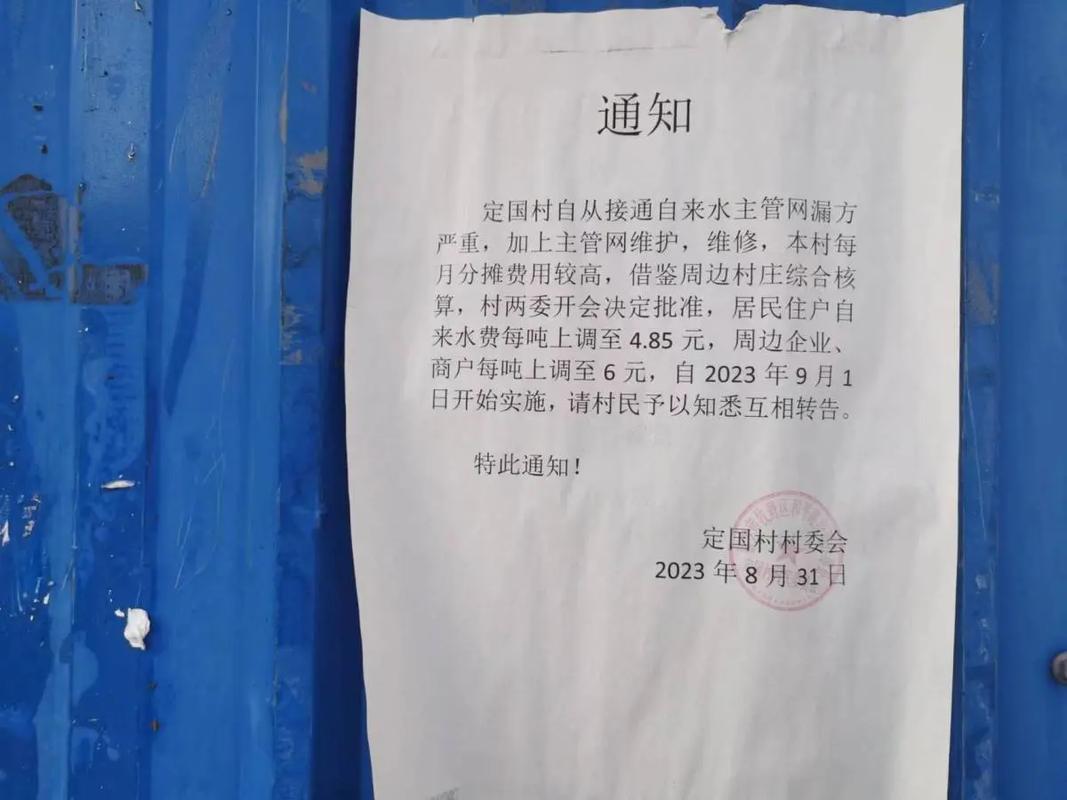 通知
定国村自从接通自来水主管网漏方
严重，加上主管网维护，维修，本村每
月分摊费用较高，借鉴周边村庄综合核
算，村两委开会决定批准，居民住户自
来水费每吨上调至 4.85 元，周边企业、
商户每吨上调至 6 元，自 2023 年 9 月 1
日开始实施，请村民予以知悉互相转告。
特此通知！
定国村村委会
2023 年 8 月 31 日